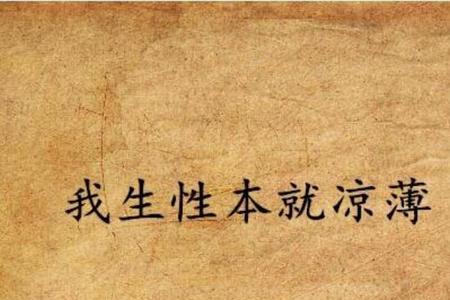 我生性本就凉薄